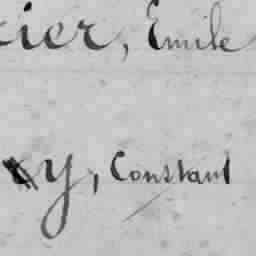 ier, Emile
y, Constant